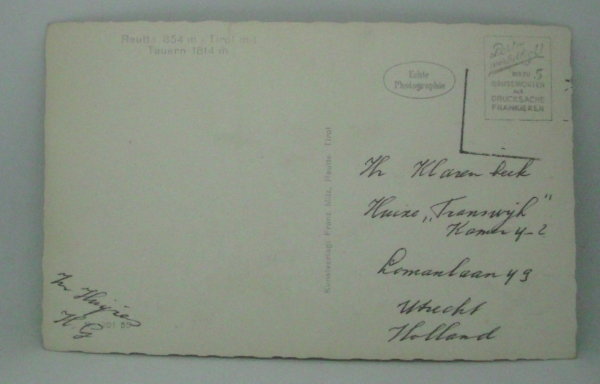 Reutte 854 m, Tirol mit
Tauern 1814 m
Echte
Photographie
MAX. 5
GRUSSWORTEN
ALS
DRUCKSACHE
FRANKIEREN
Kunstverlag Franz Milz, Reutte, Tirol
Hr Klarenbeek
Huize „Transwijk"
Kamer 4-2
Lomanlaan 49
Utrecht
Holland